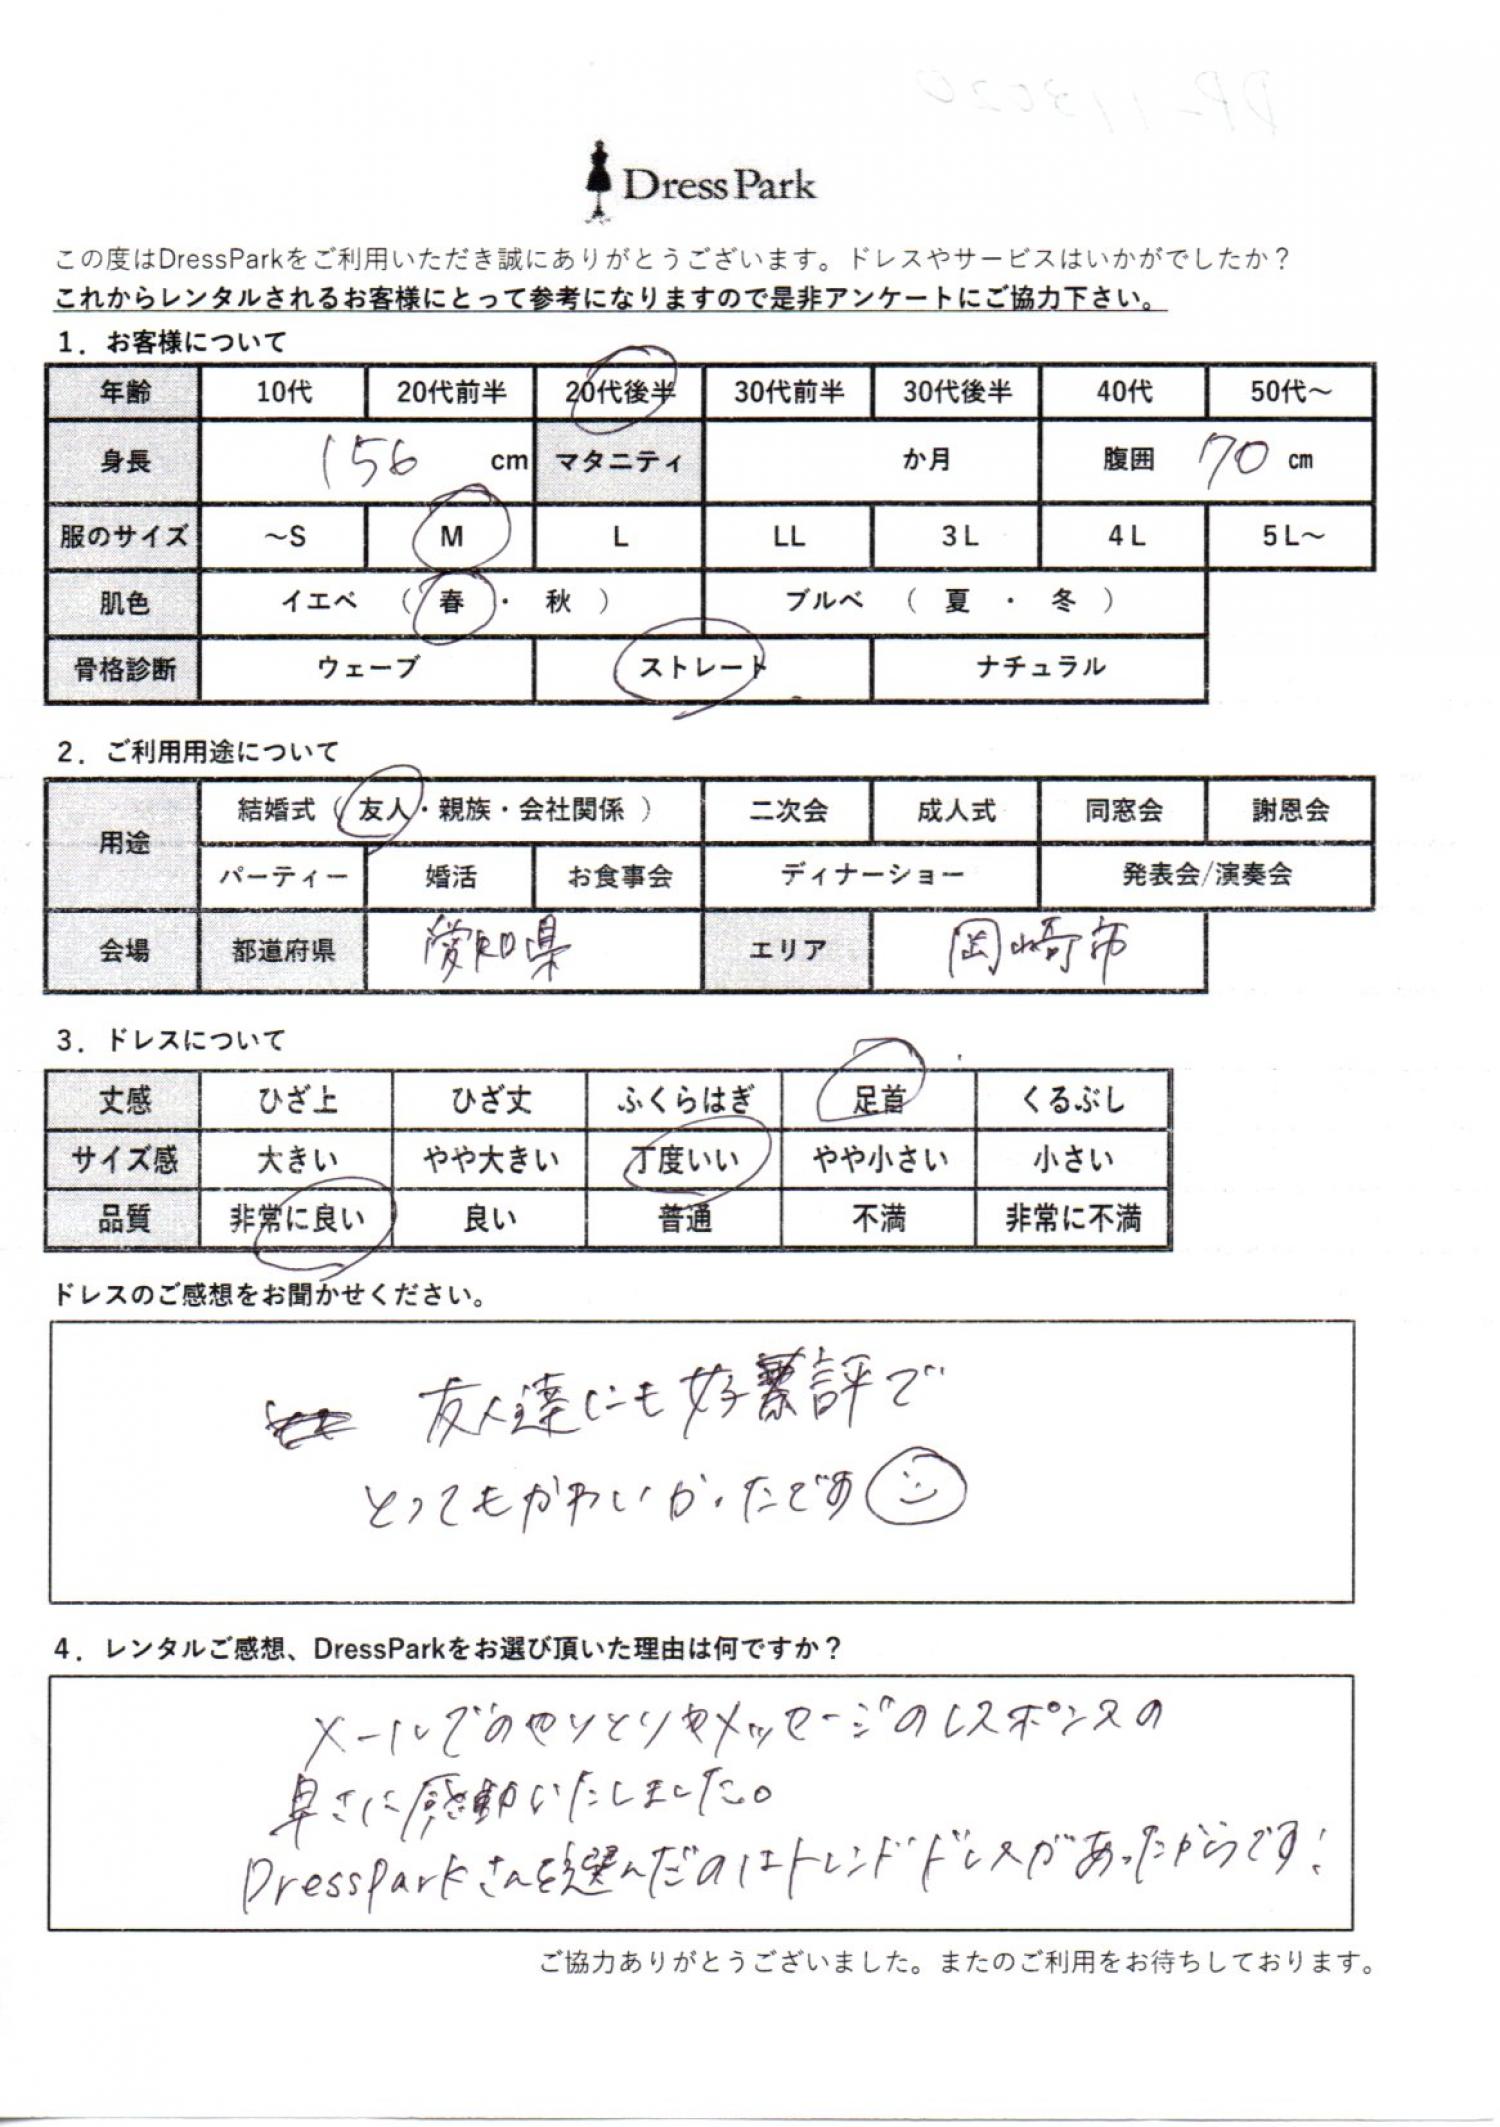 DP-113020
DressPark
この度はDressParkをご利用いただき誠にありがとうございます。ドレスやサービスはいかがでしたか？
これからレンタルされるお客様にとって参考になりますので是非アンケートにご協力下さい。
1．お客様について
年齢 10代 20代前半 20代後半 30代前半 30代後半 40代 50代～
身長 156 cm マタニティ か月 腹囲 70 cm
服のサイズ ～S M L LL 3L 4L 5L～
肌色 イエベ （ 春 ・ 秋 ） ブルベ （ 夏 ・ 冬 ）
骨格診断 ウェーブ ストレート ナチュラル
2．ご利用用途について
用途 結婚式（ 友人・親族・会社関係 ） 二次会 成人式 同窓会 謝恩会
パーティー 婚活 お食事会 ディナーショー 発表会/演奏会
会場 都道府県 愛知県 エリア 岡崎市
3．ドレスについて
丈感 ひざ上 ひざ丈 ふくらはぎ 足首 くるぶし
サイズ感 大きい やや大きい 丁度いい やや小さい 小さい
品質 非常に良い 良い 普通 不満 非常に不満
ドレスのご感想をお聞かせください。
友人達にも好評で
とってもかわいかったです
4．レンタルご感想、DressParkをお選び頂いた理由は何ですか？
メールでのやりとりやメッセージのレスポンスの
早さに感動いたしました。
DressParkさんを選んだのはトレンドドレスがあったからです！
ご協力ありがとうございました。またのご利用をお待ちしております。